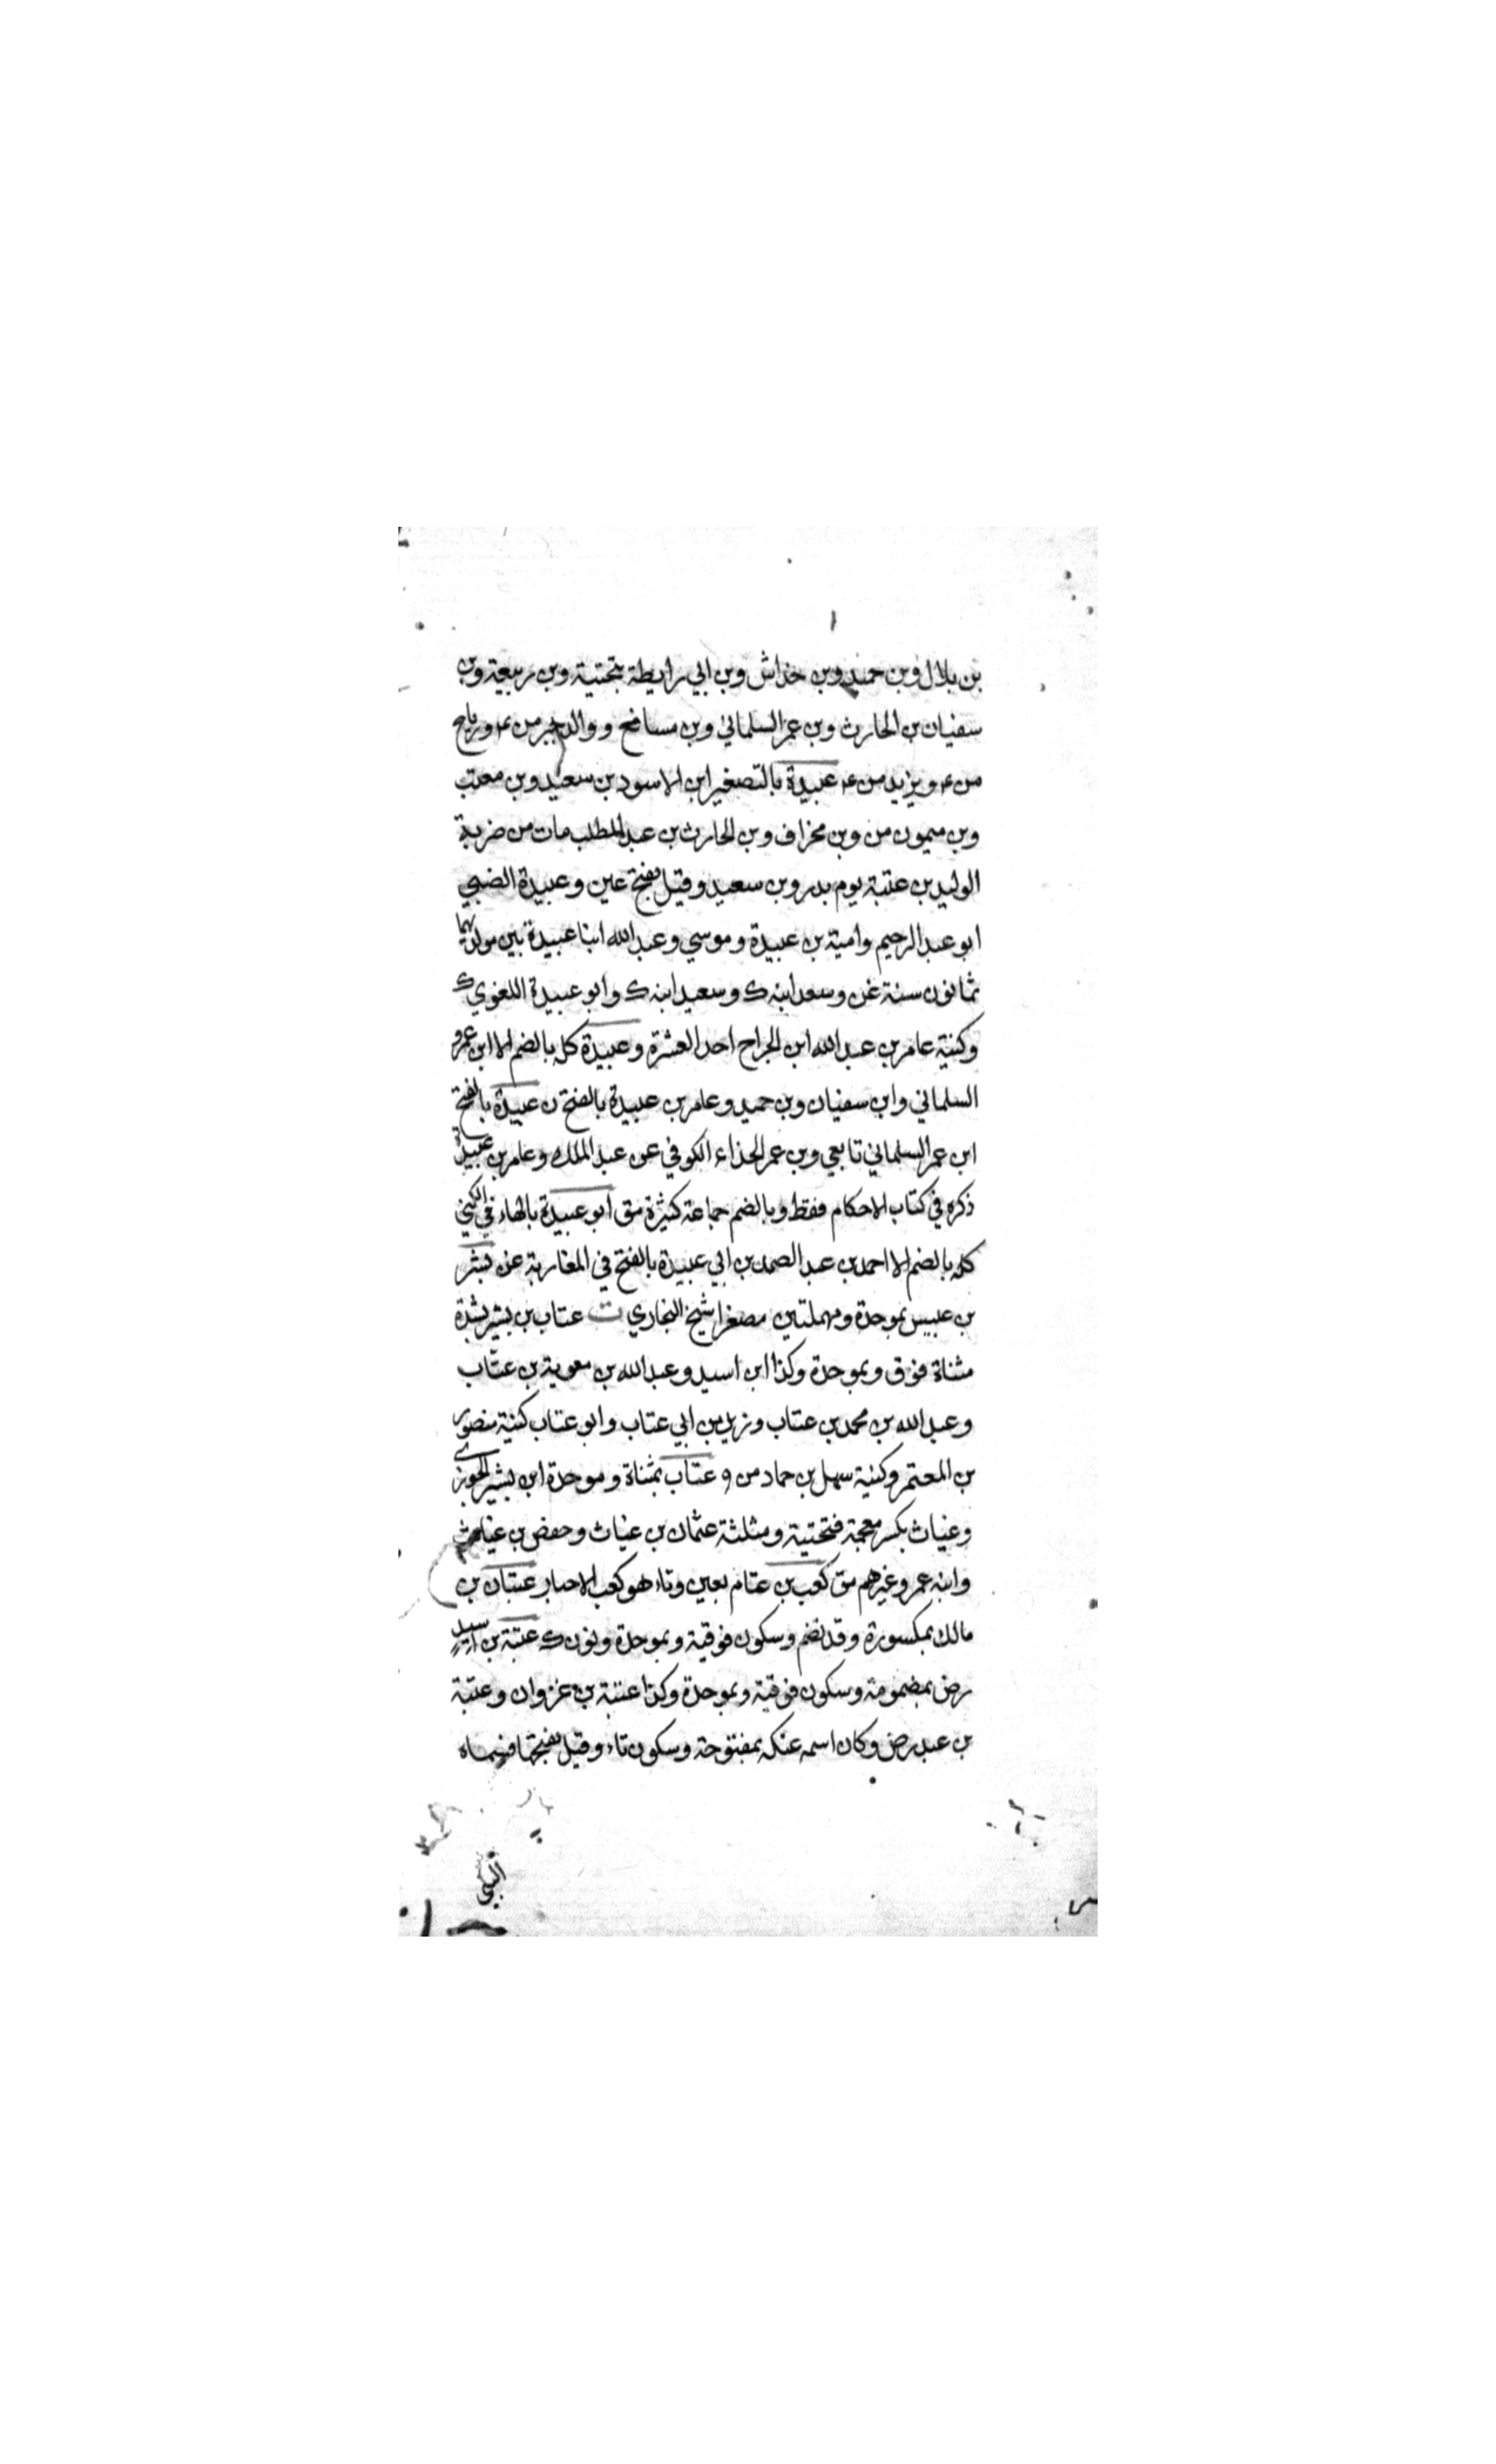 بن بلال وبن حميد وبن خداش وبن ابي رايطة بتحتية وبن ربيعة وبن
سفيان بن الحارث وبن عمر السلماني وبن مسافح ووالد من م ورباح
من م ويزيد من م عبيدة بالتصغير ابن الاسود بن سعيد وبن معتب
وبن ميمون من وبن مخراف وبن الحارث بن عبد المطلب مات من ضربة
الوليد بن عتبة يوم بدر وبن سعيد وقيل بفتح عين وعبيدة الضبي
ابو عبد الرحيم وامية بن عبيدة وموسي وعبد الله ابنا عبيدة بين مولدهما
ثمانون سنة غن وسعد ابنه ك وسعيد ابنه ك وابو عبيدة اللغوي ك
وكنية عامر بن عبد الله ابن الجراح احد العشرة وعبيدة كله بالضم الا ابن عمرو
السلماني وابن سفيان وبن حميد وعامر بن عبيدة بالفتح ن عبيدة بالفتح
ابن عمر السلماني تابعي وبن عمر الحذاء الكوفي عن عبد الملك وعامر بن عبيدة
ذكره في كتاب الاحكام فقط وبالضم جماعة كثيرة مق ابو عبيدة بالهاء في الكني
كله بالضم الا احمد بن عبد الصمد بن ابي عبيدة بالفتح في المغاربة عن بشر
بن عبيس بموحدة ومهملتين مصغرا شيخ البخاري ت عتاب بن بشير بشدة
مثناة فوق وبموحدة وكذا ابن اسيد وعبد الله بن معوية بن عتاب
وعبد الله بن محمد بن عتاب وزيد بن ابي عتاب وابو عتاب كنية منصور
بن المعتمر وكنية سهل بن حماد من و عتاب بمثناة وموحدة ابن بشير الجوزي
وغياث بكسر معجمة فتحتية ومثلثة عثمان بن غياث وحفص بن غياث
وابنه عمر وغيرهم مق كعب بن عتام بعين وتاء هو كعب الاحبار عتبان بن
مالك بمكسورة وقد تضم وسكون فوقية وبموحدة ونون ك عتبة بن اسيد
رض بمضمومة وسكون فوقية وبموحدة وكذا عتبة بن غزوان وعتبة
بن عبد رض وكان اسمه عتله بمفتوحة وسكون تاء وقيل بفتحها فسماه
النبي